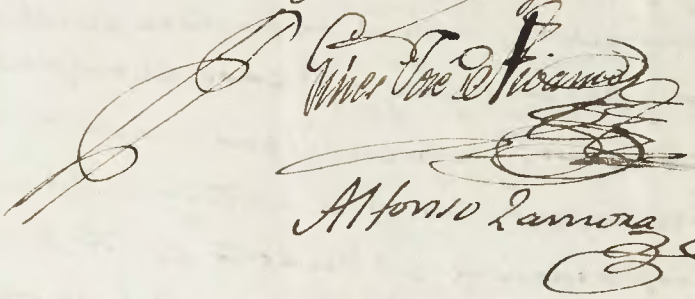 Gines José De Vivanco
Alfonso Zamora